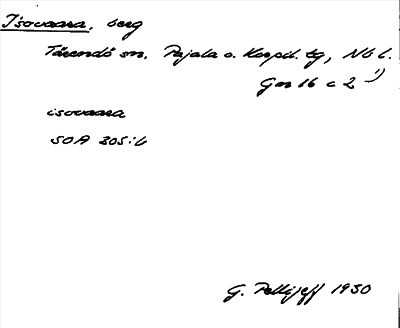 Isovaara, berg
Tärendö sn. Pajala o. Korpil. tg, Nb l.
Gm 16 c 2 ¹)
isovaara
SOA 305:b
G. Pellijeff 1950